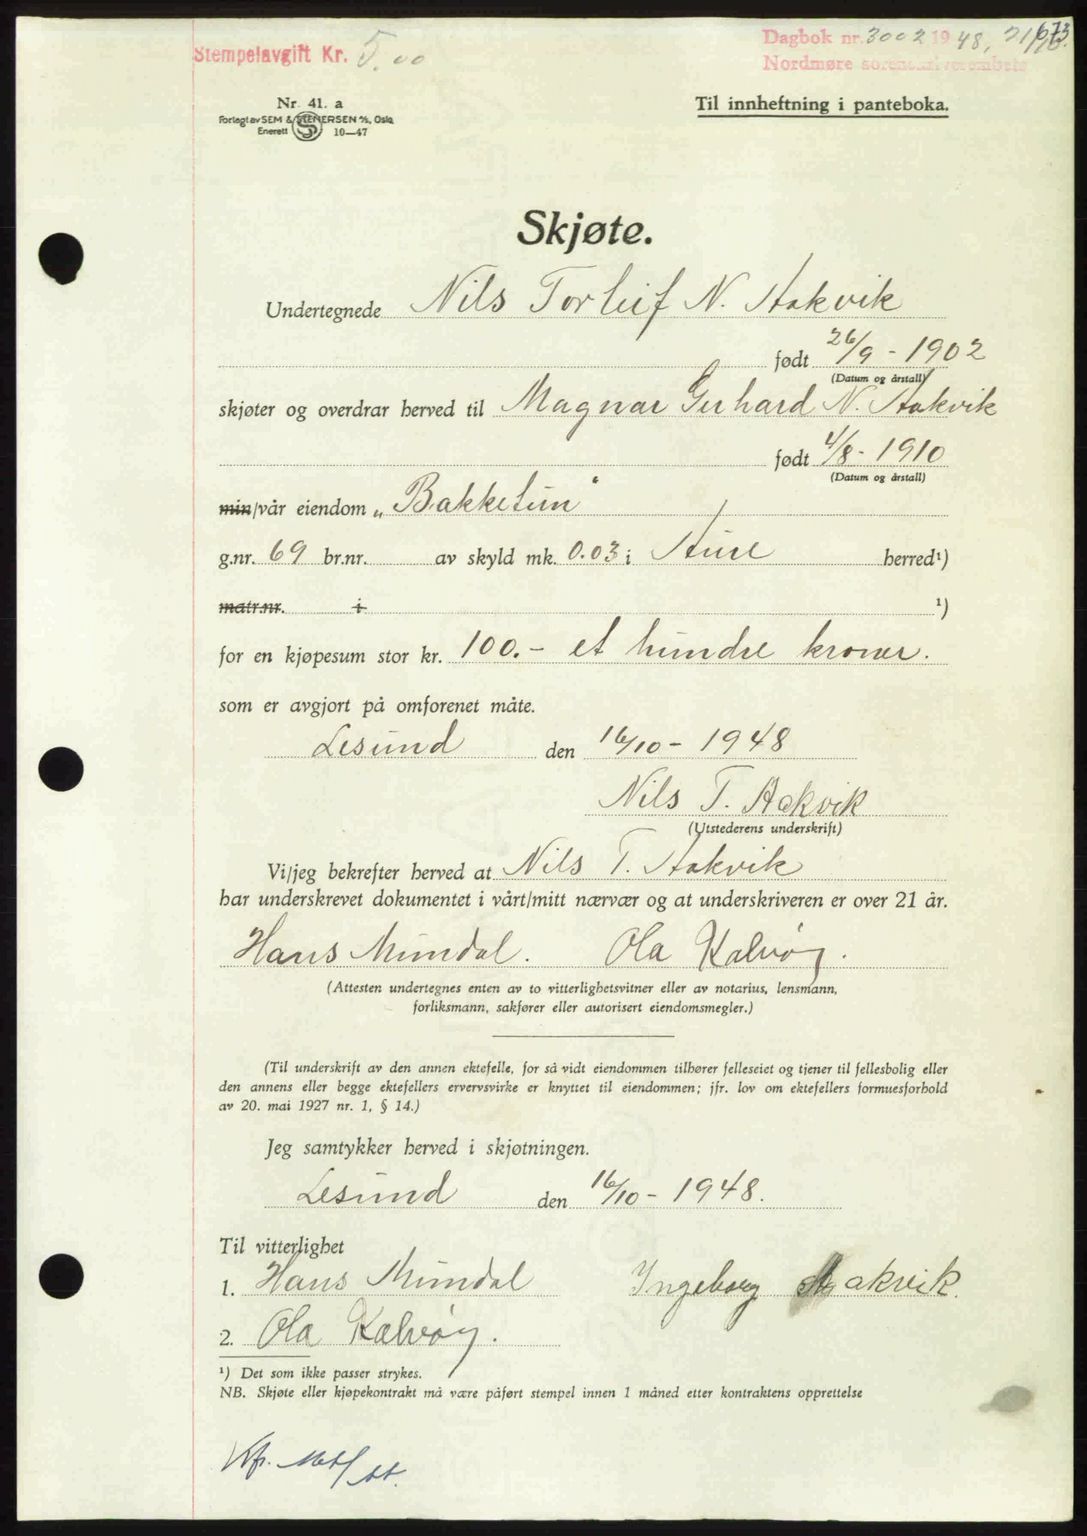 Stempelavgift Kr. 5.00
Dagbok nr. 3002 1948, 21/10.
673
Nordmøre sorenskriverembete
Nr. 41. a
Forlegt av SEM & STENERSEN A/S, Oslo
Enerett S 10—47
Til innheftning i panteboka.
Skjøte.
Undertegnede Nils Torleif N. Aakvik
født 26/9 - 1902
(Datum og årstall)
skjøter og overdrar herved til Magnar Gerhard N. Aakvik
født 4/8 - 1910
(Datum og årstall)
min/vår eiendom „Bakketun"
g.nr. 69 br.nr. av skyld mk. 0.03 i Aure herred¹)
matr.nr. i ¹)
for en kjøpesum stor kr. 100.- et hundre kroner.
som er avgjort på omforenet måte.
Lesund den 16/10 - 1948
Nils T. Aakvik
(Utstederens underskrift)
Vi/jeg bekrefter herved at Nils T. Aakvik
har underskrevet dokumentet i vårt/mitt nærvær og at underskriveren er over 21 år.
Hans Mundal. Ola Kalvøy.
(Attesten undertegnes enten av to vitterlighetsvitner eller av notarius, lensmann,
forliksmann, sakfører eller autorisert eiendomsmegler.)
(Til underskrift av den annen ektefelle, for så vidt eiendommen tilhører felleseiet og tjener til fellesbolig eller
den annens eller begge ektefellers ervervsvirke er knyttet til eiendommen; jfr. lov om ektefellers formuesforhold
av 20. mai 1927 nr. 1, § 14.)
Jeg samtykker herved i skjøtningen.
Lesund den 16/10 - 1948.
Til vitterlighet
1. Hans Mundal Ingeborg Aakvik.
2. Ola Kalvøy.
¹) Det som ikke passer strykes.
NB. Skjøte eller kjøpekontrakt må være påført stempel innen 1 måned etter kontraktens opprettelse